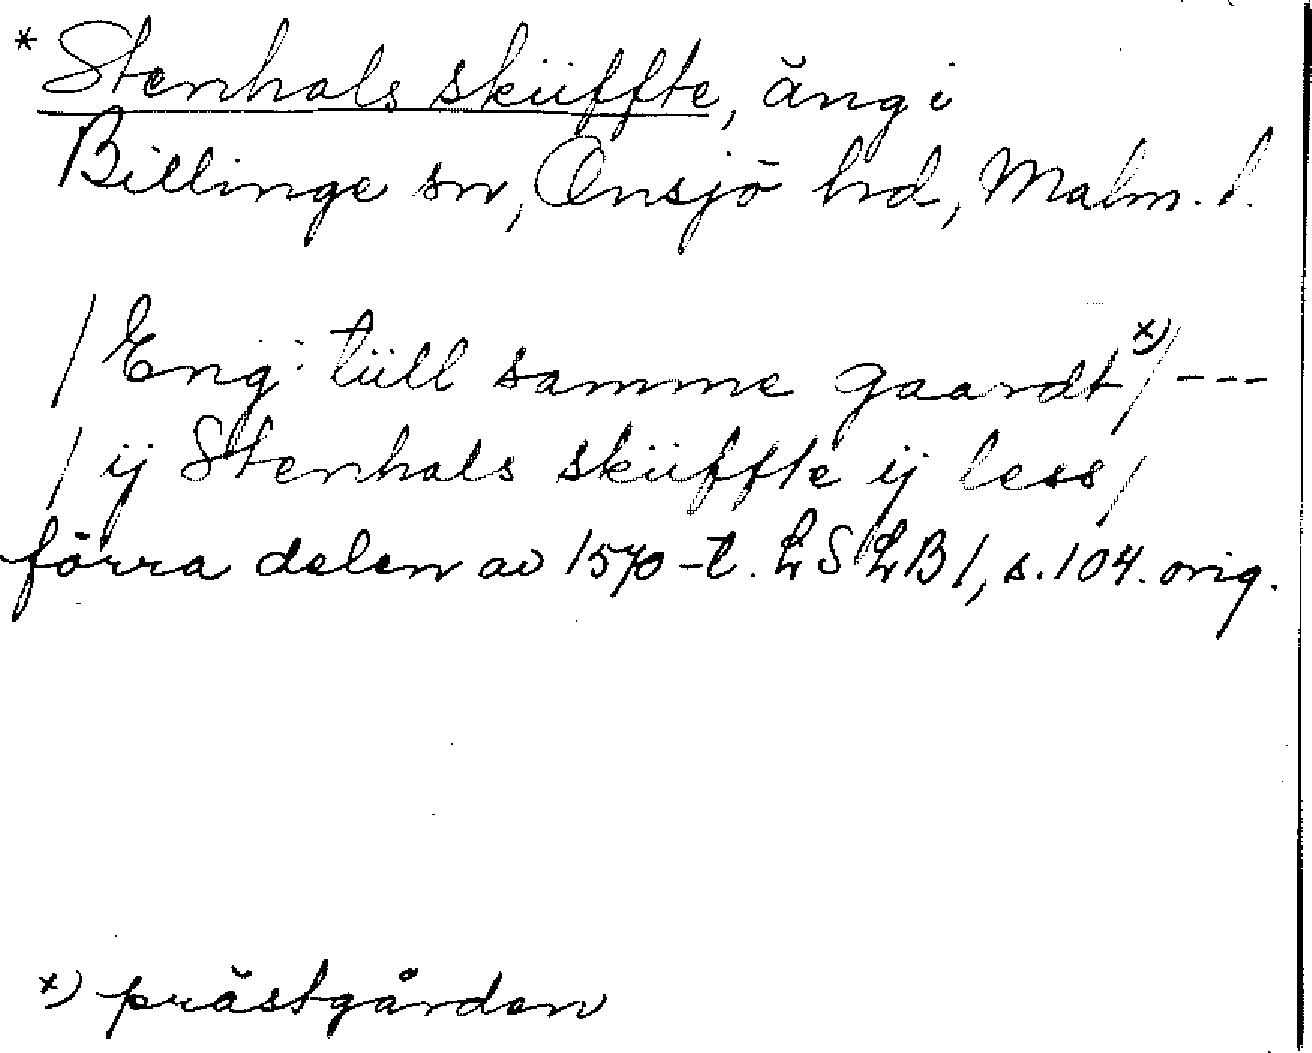 * Stenhals sküffte, äng i
Billinge sn, Onsjö hd, Malm. l.
/ Eng: tüll samme gaardt x) / ---
/ ij Stenhals sküffte ij less /
förra delen av 1570-t. LSLB 1, s. 104. orig.
x) prästgården